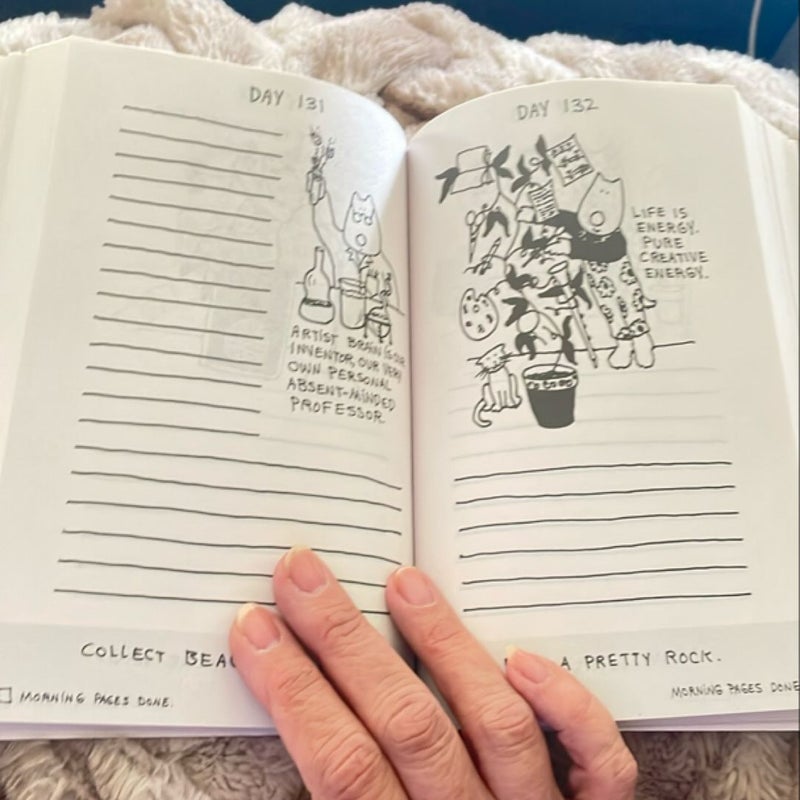 DAY 131
ARTIST BRAIN IS OUR
INVENTOR, OUR VERY
OWN PERSONAL
ABSENT-MINDED
PROFESSOR.
COLLECT
MORNING PAGES DONE.
DAY 132
LIFE IS
ENERGY.
PURE
CREATIVE
ENERGY.
A PRETTY ROCK.
MORNING PAGES DONE